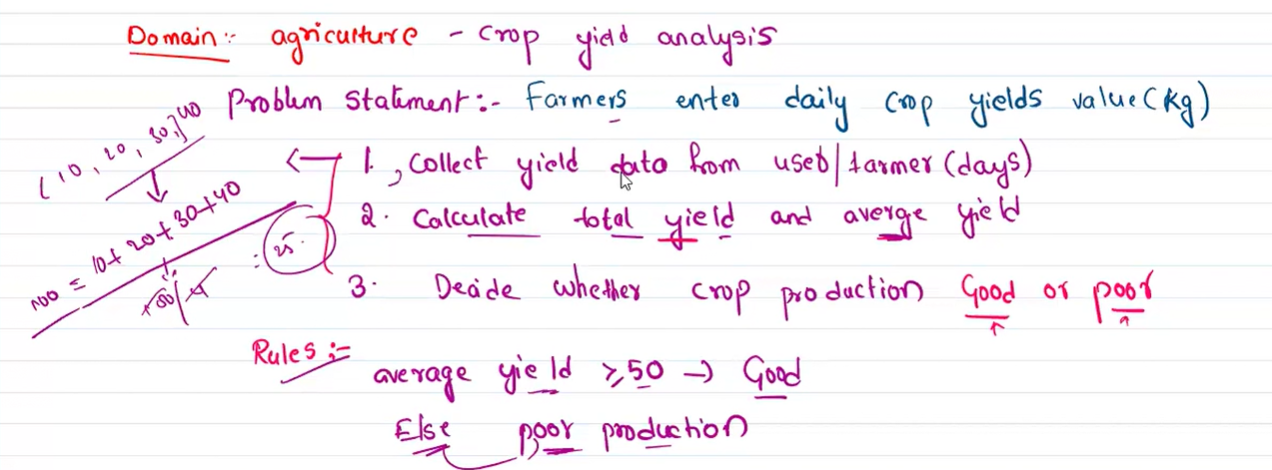 Domain:- agriculture - crop yield analysis
Problem Statement:- Farmers enter daily crop yields value (kg)
1., Collect yield data from user/farmer (days)
2. Calculate total yield and averge yield
3. Decide whether crop production Good or poor
Rules:-
average yield ≥50 → Good
Else poor production
(10, 20, 30,) 40
100 = 10+20+30+40
100/4 = 25.